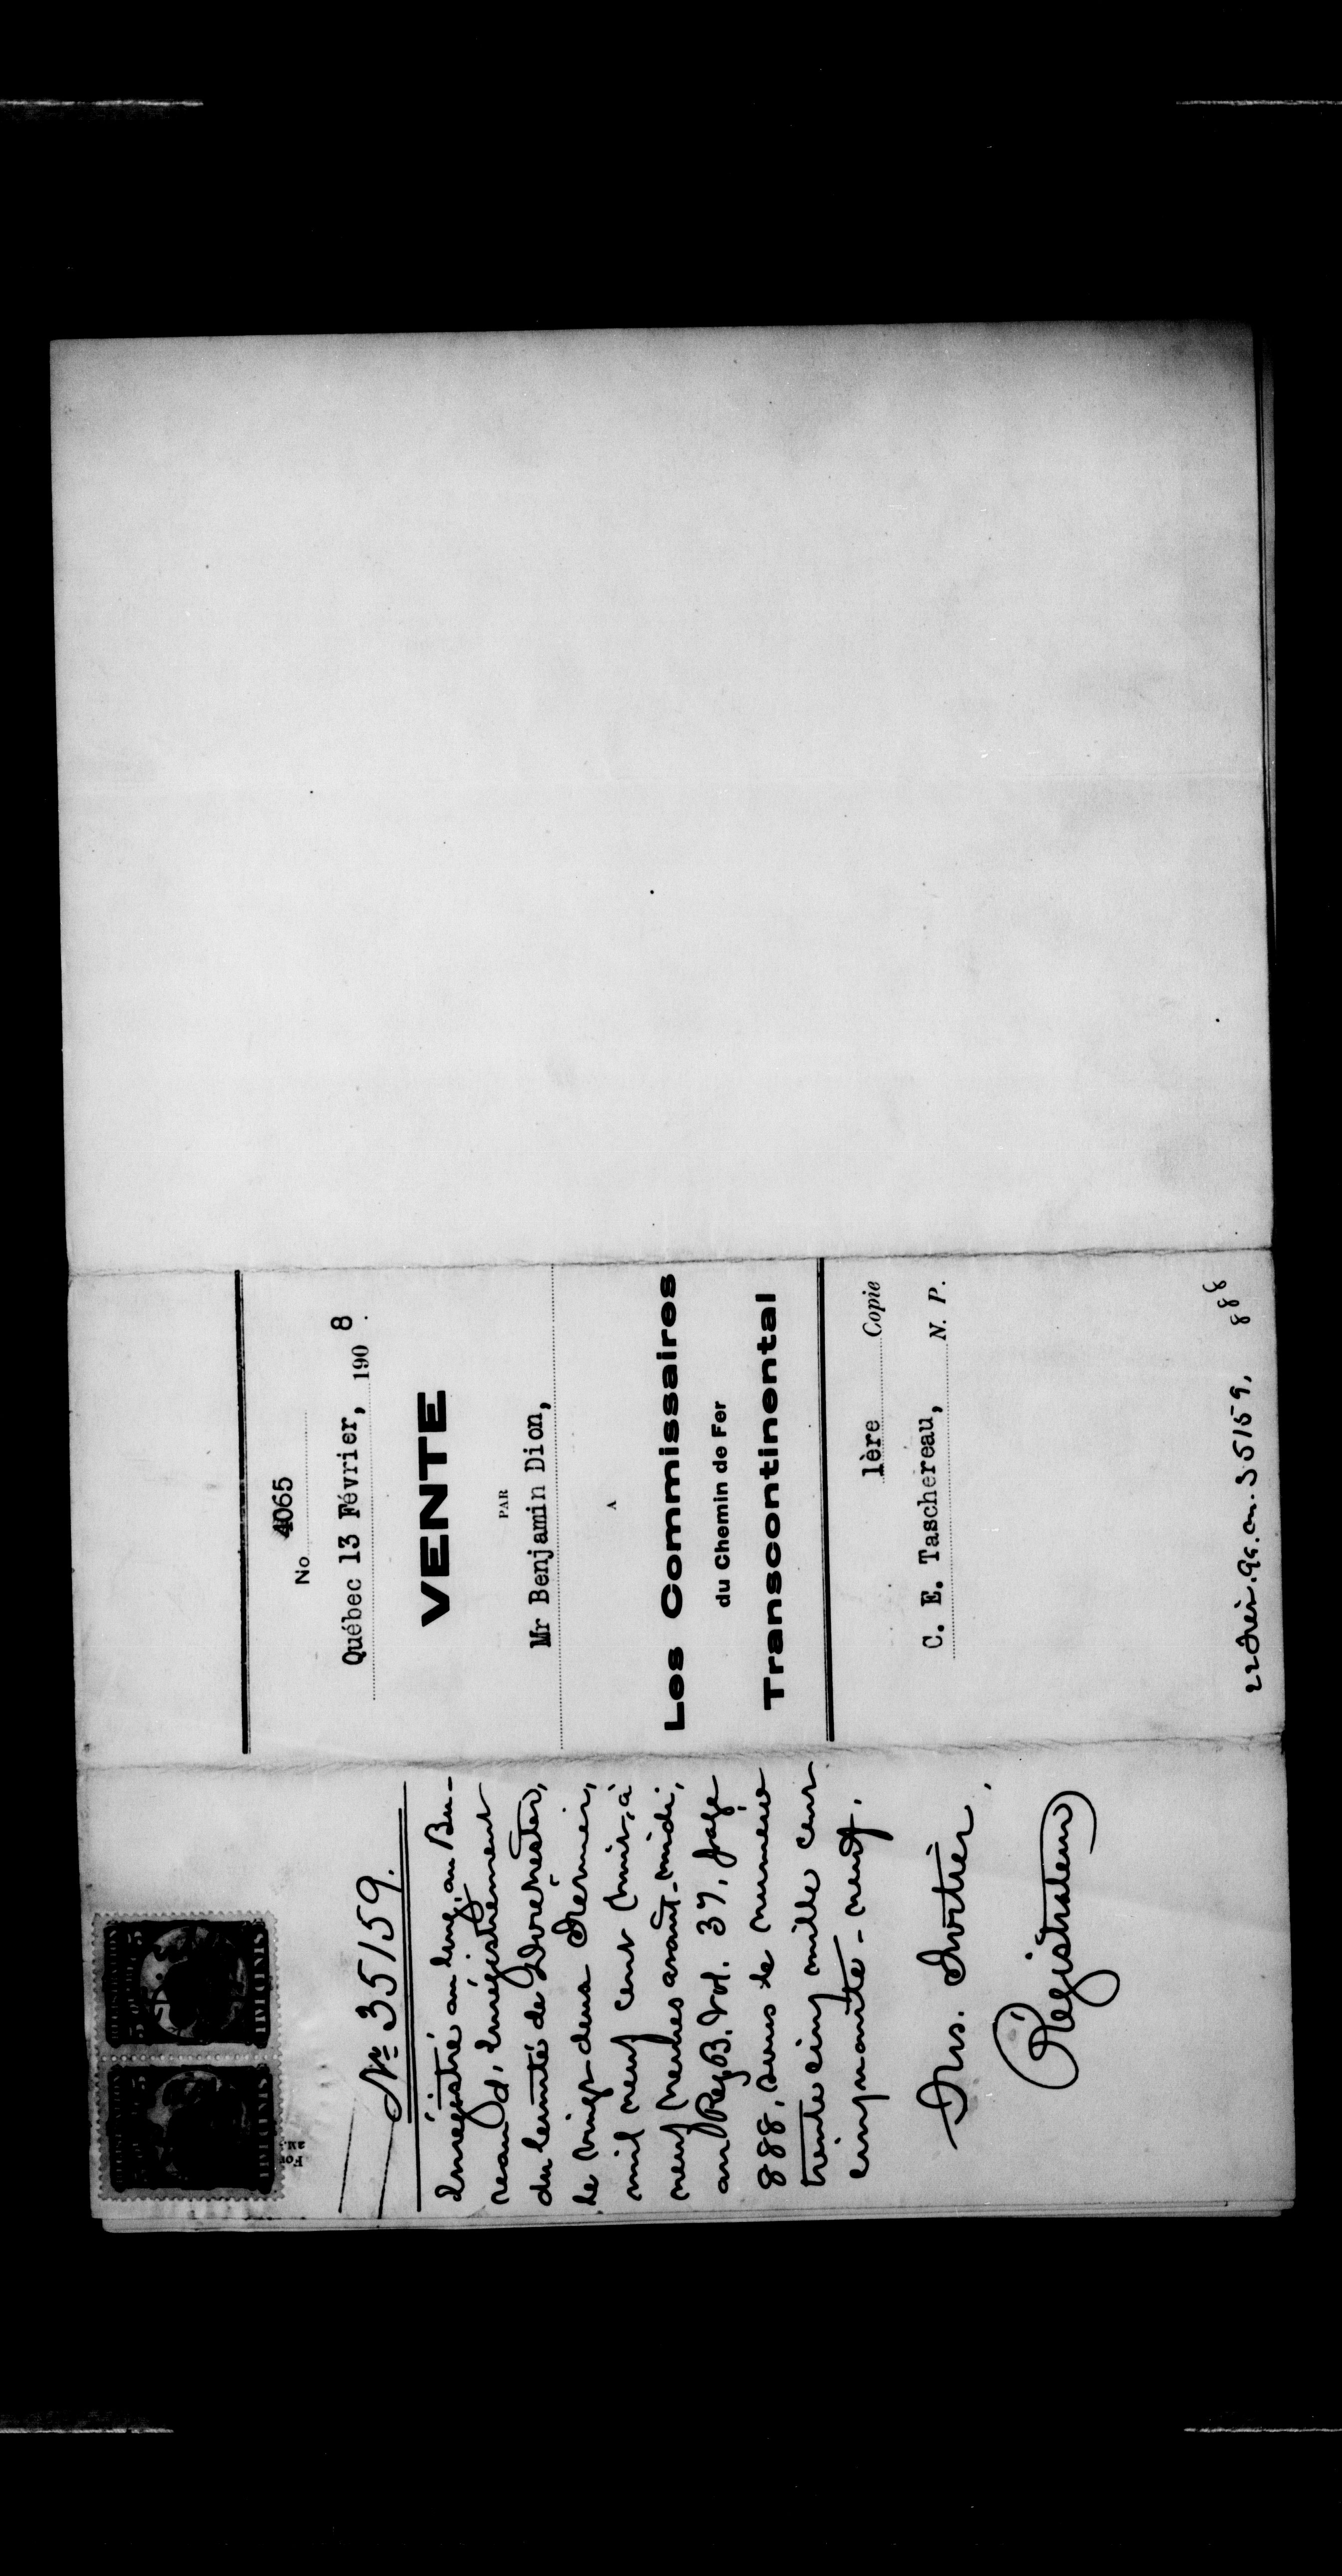 No 4065
Québec 13 Février, 1908.
VENTE
PAR
Mr Benjamin Dion,
A
Les Commissaires
du Chemin de Fer
Transcontinental
1ère Copie
C. E. Taschereau, N. P.
No 35159.
Enregistré au long, au Bu-
reau d'Enregistrement
du Comté de Dorchester,
le vingt-deux Février,
mil neuf cent huit, à
neuf heures avant-midi,
au Reg B. Vol. 37, page
888, sous le numéro
trente cinq mille cent
cinquante-neuf.
Frs. Fortier,
Registrateur
22 Fév. 9h. am. 35159, 888
FIVE CENTS
FIVE CENTS